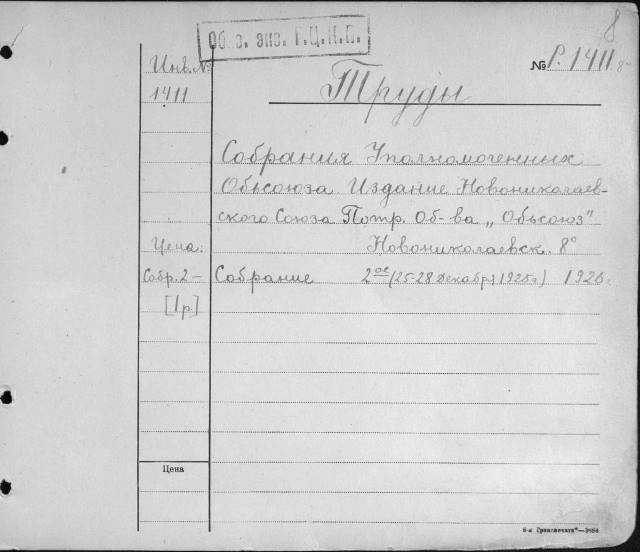 8
Об. в. экз. Г.Ц.К.П.
Инв. № 1411
№ Р. 1411 8°
Труды
Собрания Уполномоченных
Обьсоюза Издание Новониколаев-
ского Союза Потр. Об-ва „Обьсоюз"
Цена: Новониколаевск. 8°
Собр. 2 – Собрание 2ое (25-28 декабря 1925 г.) 1926 г.
[1 р.]
Цена